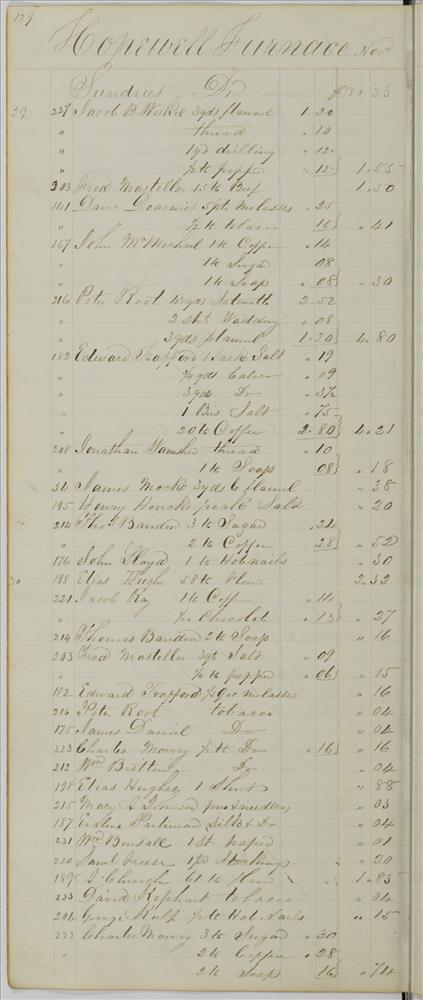 129
Hopewell Furnace Nov
Sundries Dr
29 227 Jacob B 3 yds flannel 1.20
" thread .10
" 1 yd drilling .12
" ½ lb pepper .12 1.55
303 Fred Mosteller 15 lb Beef 1.50
141 Davis 5 pts molasses .25
" ½ lb tobacco 16 .41
167 John McMichael 1 lb Coffee .14
" 1 lb Sugar 08
" 1 lb Soap .08 .30
216 Peter Root yds 2.52
" 2 Wadding .08
" 3 yds flannel 1.20 4.80
182 Edward Trafford 1 Sack Salt .19
" yds Calico .09
" 3 yds Do .37½
" 1 Bus Salt .75
" 20 lb Coffee 2.80 4.21
208 Jonathan thread .10
" 1 lb Soap 08 .18
311 James Mock 3 yds flannel " 38
195 Henry Houck peck Salt " 20
214 Thos Bandon 3 lb Sugar .24
" 2 lb Coffee 28 .52
176 John Lloyd 1 lb Hobnails .30
30 198 Elias Hugh 58 lb flour 2.32
221 Jacob Ray 1 lb Coff .14
" Chocolate .13 " 27
214 Thomas Bandon 2 lb Soap " 16
203 Fred Mosteller 3 qt Salt .09
" ¼ lb pepper .06 " 15
182 Edward Trafford molasses " 16
216 Peter Root tobacco " 04
175 James Daniel Do " 04
223 Charles Mowry ½ lb Do .16 " 16
212 Wm Britton Do .04
198 Elias Hughes 1 Shirt " 88
215 Mary pins & needles " 03
187 Silk & Do " 04
231 Wm Bonsall 1 St paper " 01
220 Saml 1 pr Stockings " 20
189 J Church 61 lb flour 1.83
233 David Kephart tobacco " 04
204 George Kulp ½ lb Hob Nails " 15
223 Charles Mowry 3 lb Sugar .30
" 2 lb Coffee .28
2 lb Soap 16 .74